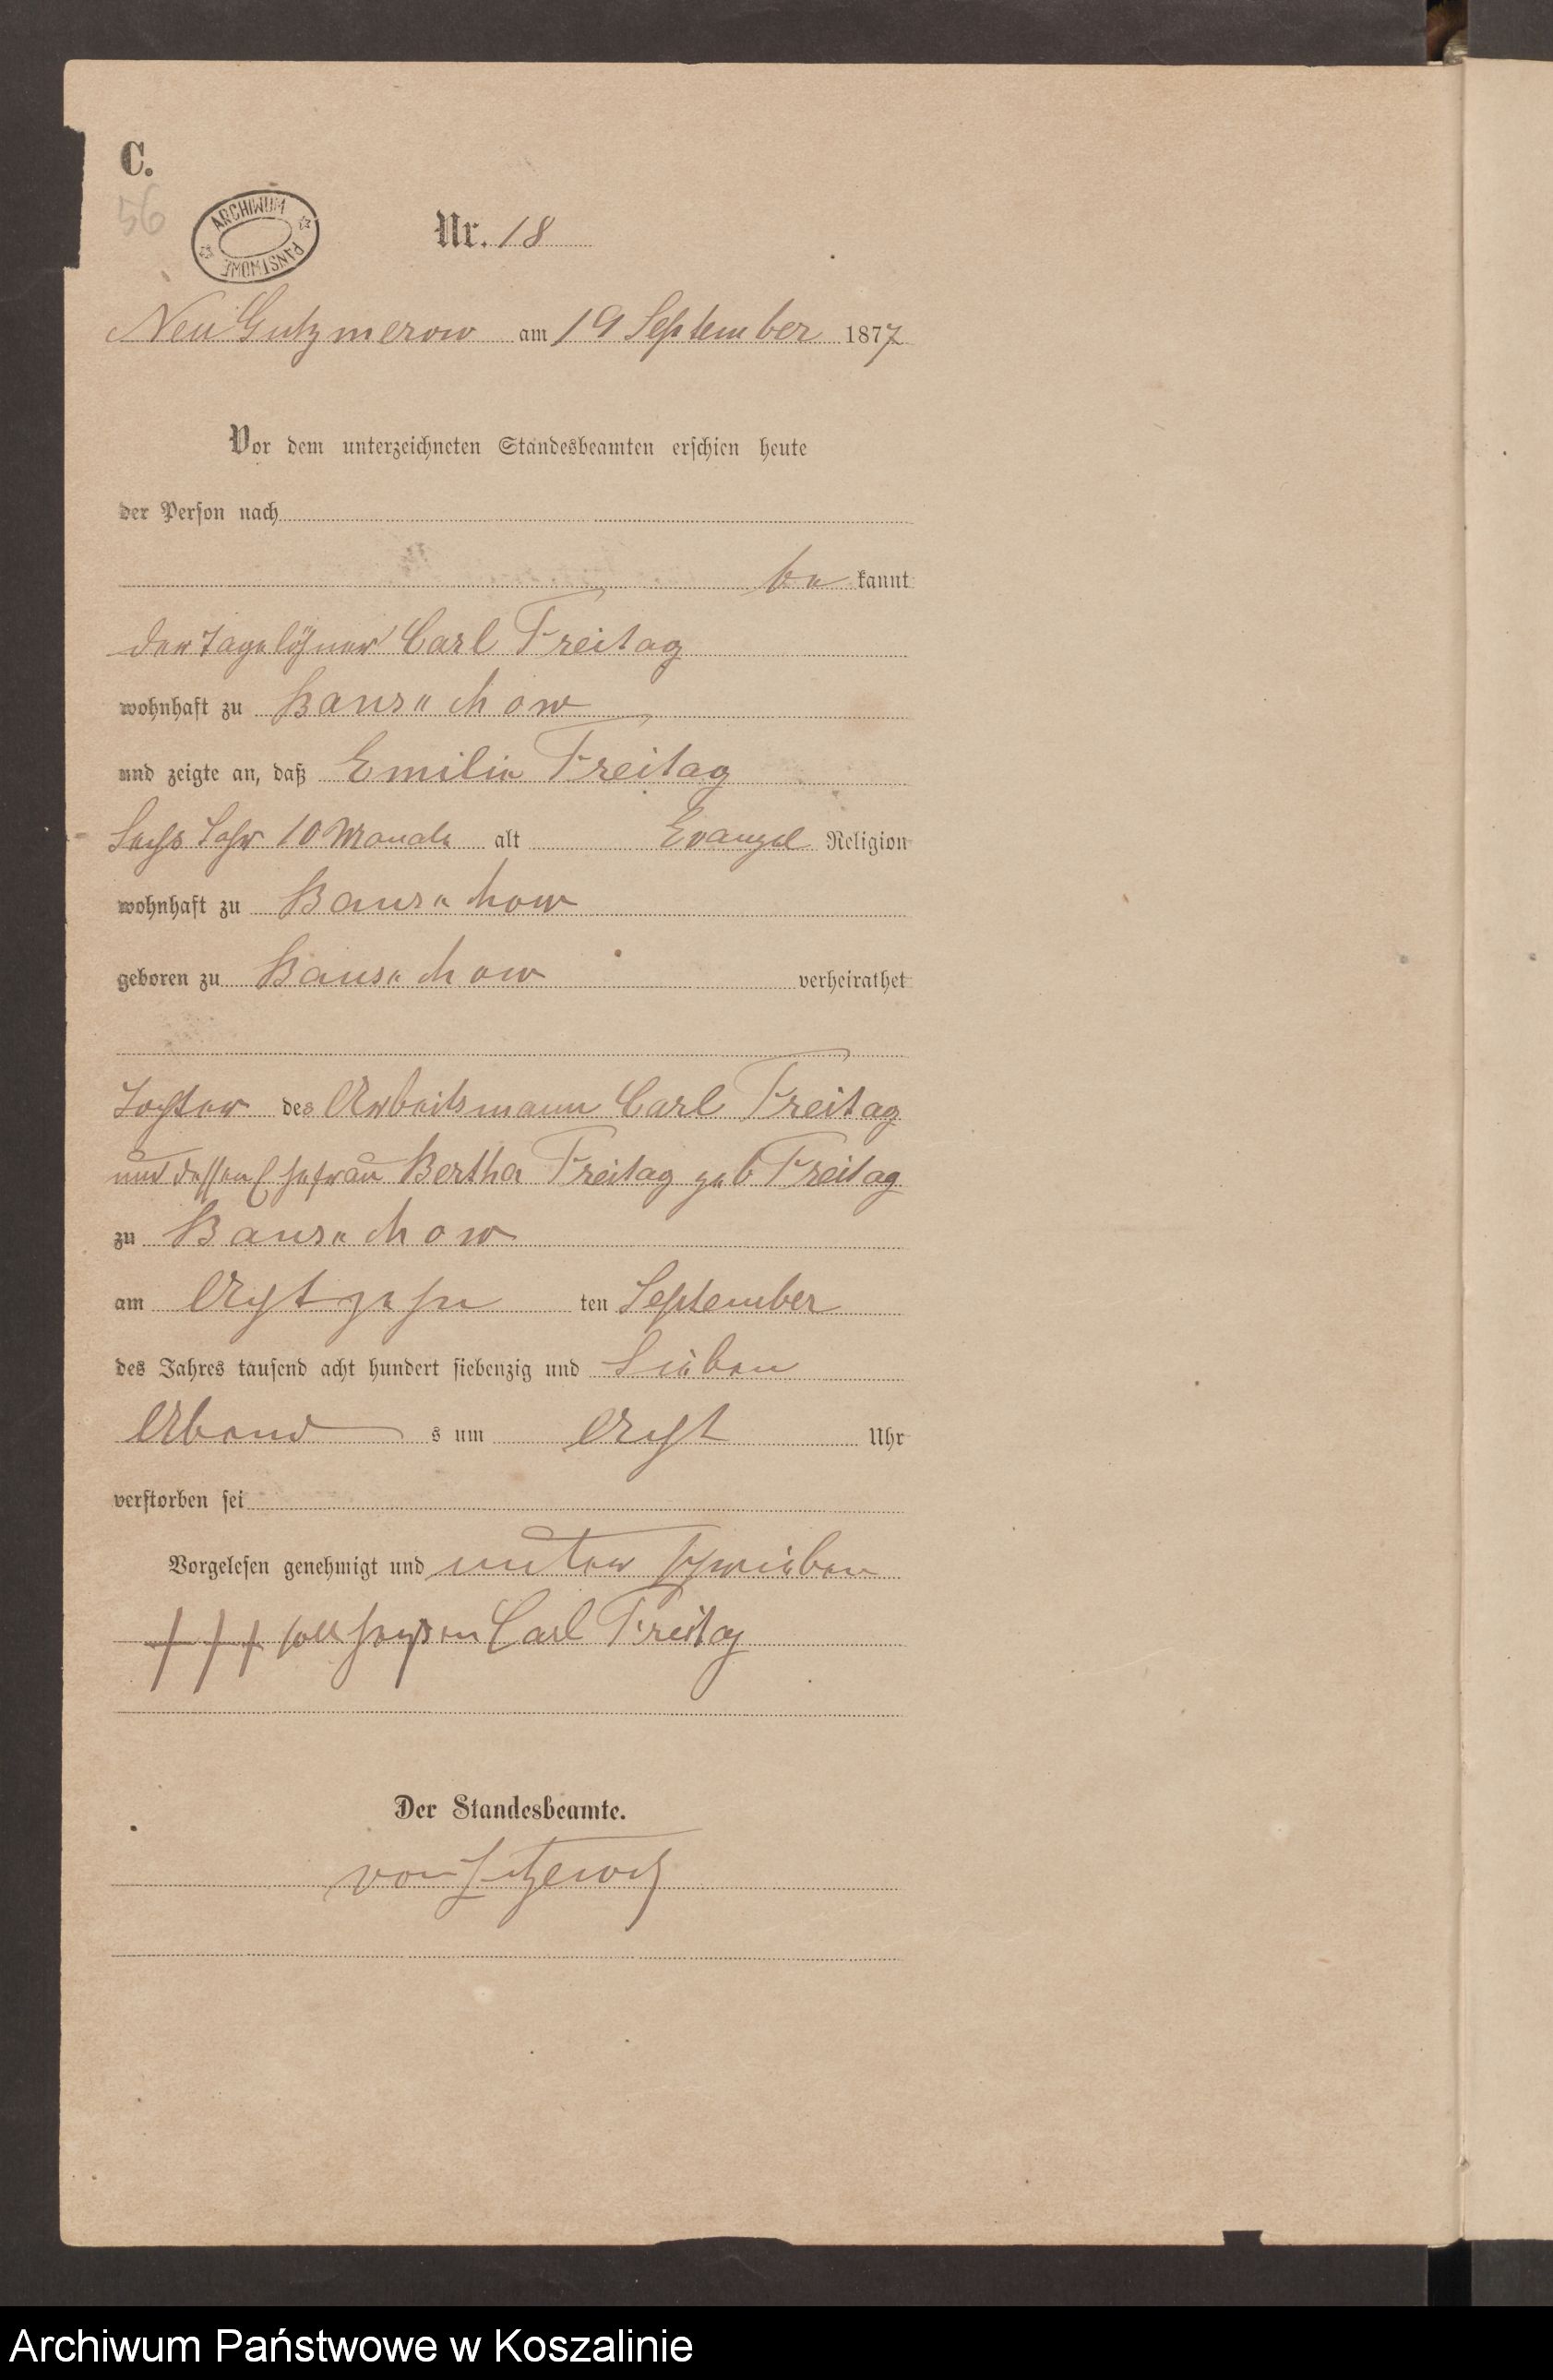 C.
56
ARCHIWUM PAŃSTWOWE
Nr. 18
Neu Gutzmerow am 19 September 1877
Vor dem unterzeichneten Standesbeamten erschien heute
der Person nach
be kannt
der Tagelöhner Carl Freitag
wohnhaft zu Banse chow
und zeigte an, daß Emilie Freitag
Sechs Jahr 10 Monate alt Evangel Religion
wohnhaft zu Banse chow
geboren zu Banse chow verheirathet
Tochter des Arbeitsmann Carl Freitag
und dessen Ehefrau Bertha Freitag geb Freitag
zu Banse chow
am Achtzehn ten September
des Jahres tausend acht hundert siebenzig und Sieben
Abend s um Acht Uhr
verstorben sei
Vorgelesen genehmigt und unter schrieben
+ + + soll heißen Carl Freitag
Der Standesbeamte.
von Zitzewitz
Archiwum Państwowe w Koszalinie